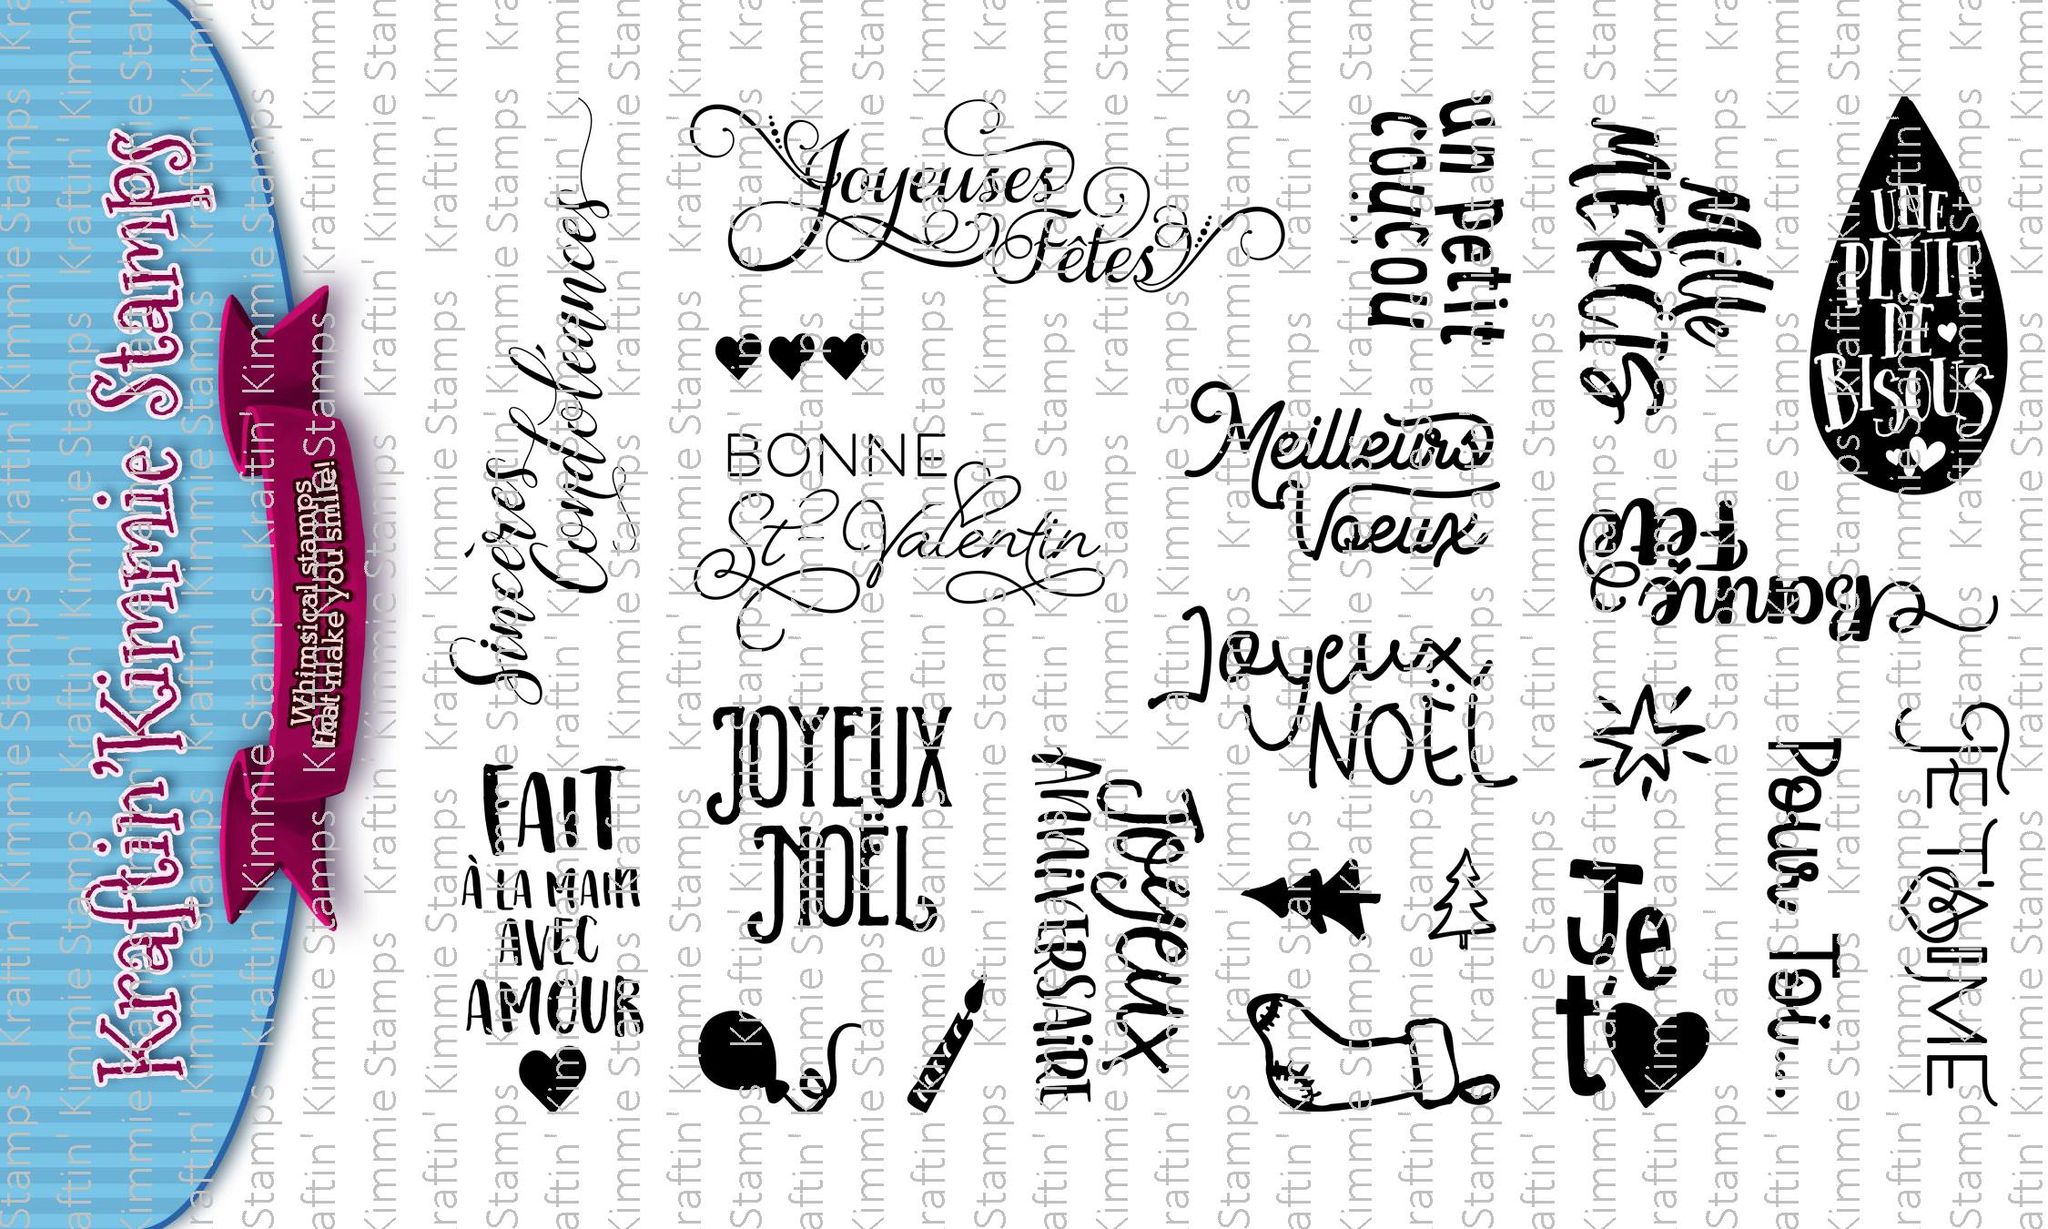 Kraftin' Kimmie Stamps
Whimsical stamps
that make you smile!
Sincères
Condoléances
Joyeuses
Fêtes
un petit
coucou
Mille
MERCIS
UNE
PLUIE
DE
BISOUS
BONNE
St-Valentin
Meilleurs
Voeux
Bonne
Fête
Joyeux
NOËL
JOYEUX
NOËL
FAIT
À LA MAIN
AVEC
AMOUR
Joyeux
ANNIVERSAIRE
Je
t'
Pour Toi...
JE T'AIME
Kraftin' Kimmie Stamps